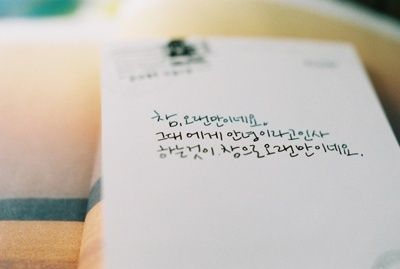 참, 오랜만이네요.
그대에게 안녕이라고 인사
하는것이. 참으로 오랜만이네요.